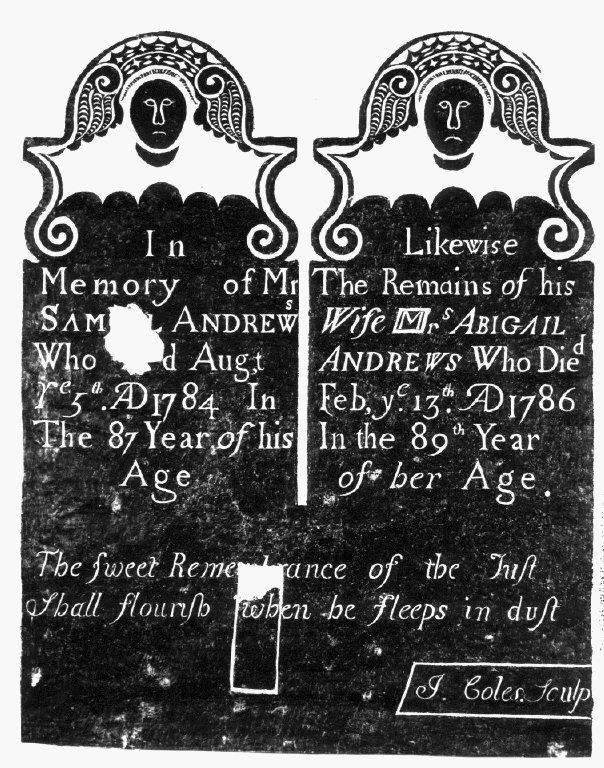 In
Memory of Mr
SAM L ANDREWS
Who d Aug,t
Yᵉ 5ᵗʰ. AD 1784 In
The 87 Year of his
Age
Likewise
The Remains of his
Wife Mrˢ ABIGAIL
ANDREWS Who Dieᵈ
Feb, yᵉ. 13ᵗʰ. AD 1786
In the 89ᵗʰ Year
of her Age.
The ſweet Remembrance of the Juſt
Shall flouriſh when he ſleeps in duſt
J. Coles. Sculp